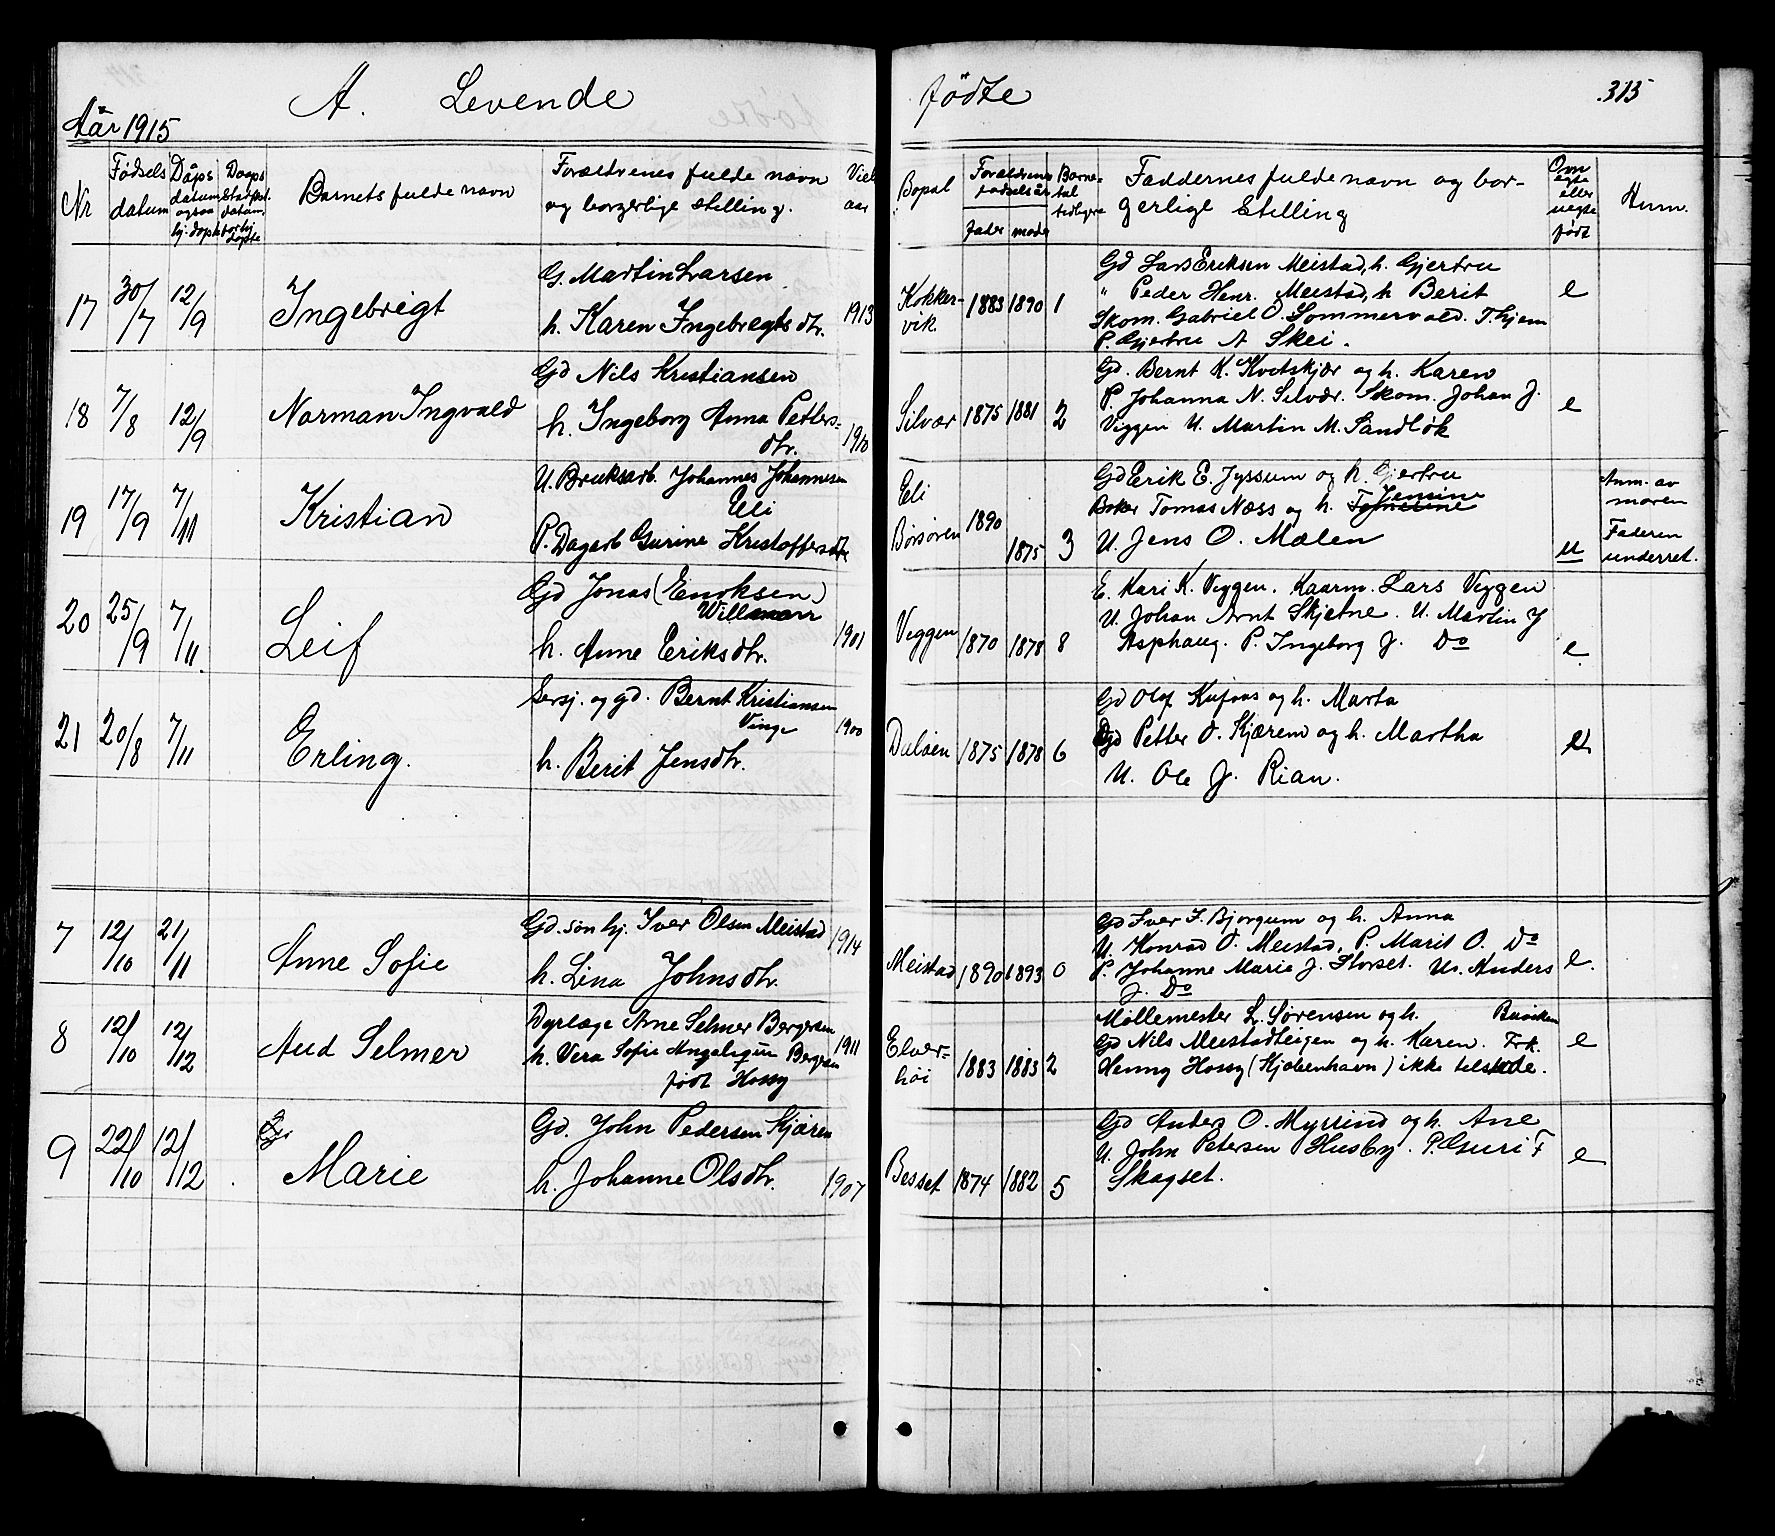 A. Levende fødte 313
Aar 1915
Nr
Fødsels datum
Dåps datum
Barnets fulde navn
Forældrenes fulde navn og borgerlige stilling.
Viel aar
Bopæl
Forældrenes fødselsår
fader moder
Barne tal tidligere
Faddernes fulde navn og borgerlige Stilling
Om egte eller uegte født
Anm.
17 30/7 12/9 Ingebrigt
G. Martin Larsen
h. Karen Ingebregtsdtr. 1913
Kokkervik 1883 1890 1
Gd Lars Eriksen Meistad, h. Gjertru
" Peder Henr. Meistad, h Berit
Skom. Gabriel O. Sommervold. T.hjem
P. Gjertru A Skei.
e
18 7/8 12/9 Norman Ingvald
Gd Nils Kristiansen
h. Ingeborg Anna Petters-
dtr. 1910
Silvær 1875 1881 2
Gd. Bernt K. Kvitskjær og h. Karen
P. Johanna N. Silvær. Skom. Johan J.
Viggen U. Martin M. Sandløk
e
19 17/9 7/11 Kristian
U. Bruksarb. Johannes Johannesen
Eli
P. Dagarb Gurine Kristoffersdtr
Eli
Børsøren 1890 1875 3
Gd Erik E. Jyssum og h. Gjertru
Tomas Næss og h. Jemine
U. Jens O. Mælen
u
Anm. av
moren
Faderen
underret.
20 25/9 7/11 Leif
Gd Jonas (Enoksen)
Willmann
h. Anne Eriksdtr. 1901
Viggen 1870 1878 8
E. Kari K. Viggen. Kaarm. Lars Viggen
U. Johan Arnt Skjetne. U. Martin J
Asphaug. P. Ingeborg J. Do
e
21 20/8 7/11 Erling.
Sersj. og gd. Bernt Kristiansen
Vinge 1900
h. Berit Jensdtr.
Duløen 1875 1878 6
Gd Olof Kufaas og h. Marta
Gd Petter O. Kjærem og h. Martha
U. Ole J. Rian.
e
7 12/10 21/11 Anne Sofie
Gd.søn hj. Iver Olsen Meistad 1914
h. Lina Johnsdtr.
Meistad 1890 1893 0
Gd Iver I. Bjørgum og h. Anna
U. Konrad O. Meistad, P. Marit O. Do
P. Johanne Marie J. Storset. Us. Anders
J. Do
e.
8 12/10 12/12 Aud Selmer
Dyrlæge Arne Selmer Bergersen 1911
h. Vera Sofie Angelique Bergersen
født Hossy
Elverhøi 1883 1883 2
Møllemester L. Sørensen og h. Buviken
Gd Nils Meistadteigen og h. Karen. Frk.
Henny Hossy (Kjøbenhavn) ikke tilstede.
e
9 22/10 12/12 Marie
Gd. John Pedersen Kjæren
h. Johanne Olsdtr. 1907
Besset 1874 1882 5
Gd Anders O. Myrrind og h. Ane
U. John Petersen Husby. P. Guri F
Skagset.
e